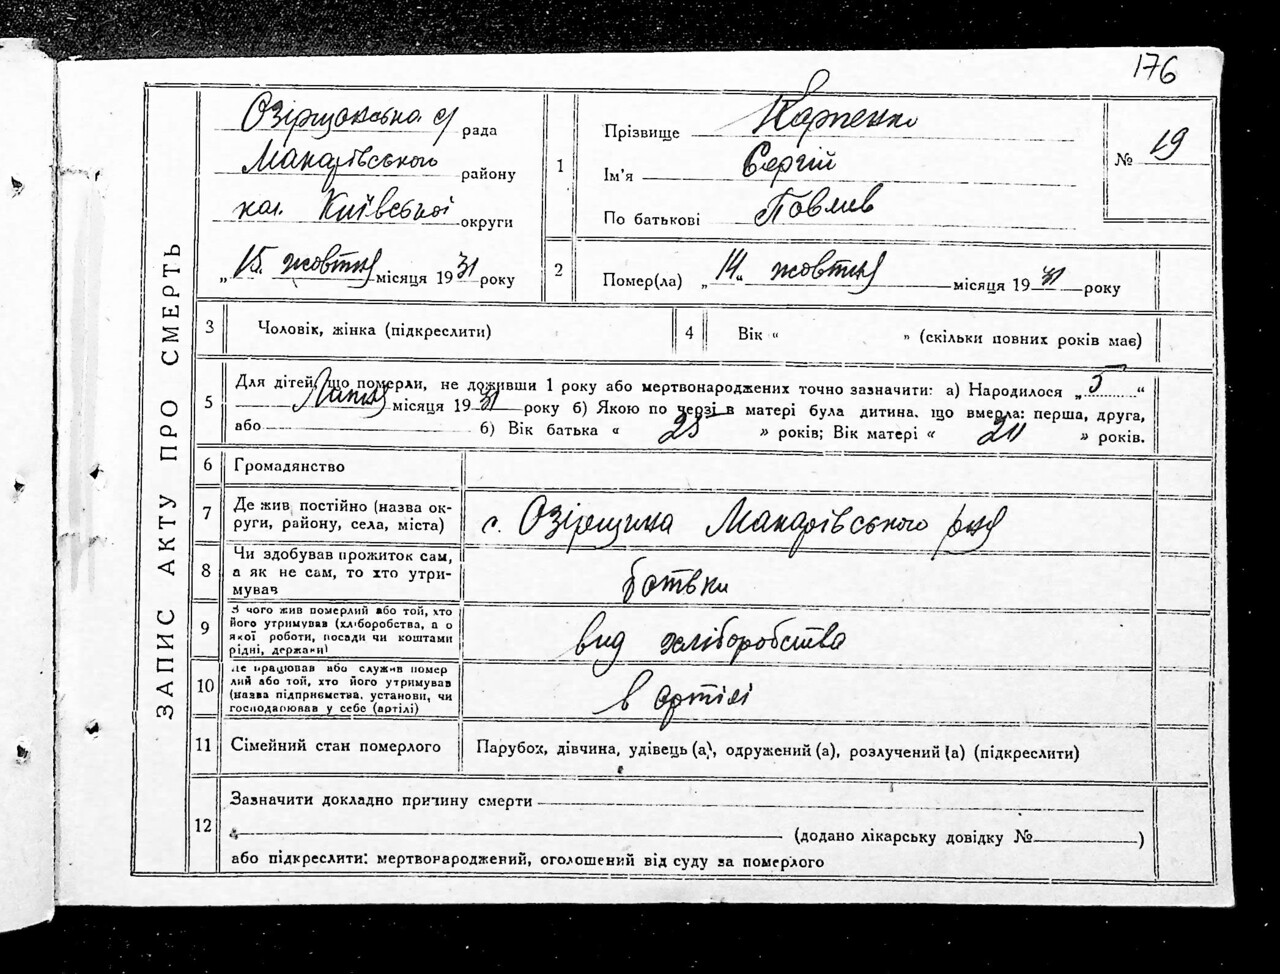 176
ЗАПИС АКТУ ПРО СМЕРТЬ
Озірщанська с/ рада
Макарівського району
кол. Київської округи
„ 15. жовтня місяця 1931 року
1 Прізвище Карпенко
Ім'я Сергій
По батькові Павлів
№ 19
2 Помер(ла) „ 14 “ жовтня місяця 1931 року
3 Чоловік, жінка (підкреслити)
4 Вік “ ” (скільки повних років має)
5 Для дітей, що померли, не доживши 1 року або мертвонароджених точно зазначити: а) Народилося „ 5 “
Липня місяця 1931 року б) Якою по черзі в матері була дитина, що вмерла: перша, друга,
або б) Вік батька « 25 » років; Вік матері « » років.
6 Громадянство
7 Де жив постійно (назва ок-
руги, району, села, міста)
с. Озірщина Макарівського р-ня
8 Чи здобував прожиток сам,
а як не сам, то хто утри-
мував
батьки
9 З чого жив померлий або той, хто
його утримував (хліборобства, а о
якої роботи, посади чи коштами
рідні, держави)
вид хліборобства
10 Де працював або служив помер
лий або той, хто його утримував
(назва підприємства, установи, чи
господарював у себе (артілі)
в артілі
11 Сімейний стан померлого
Парубок, дівчина, удівець (а), одружений (а), розлучений (а) (підкреслити)
12 Зазначити докладно причину смерти
(додано лікарську довідку № )
або підкреслити: мертвонароджений, оголошений від суду за померлого